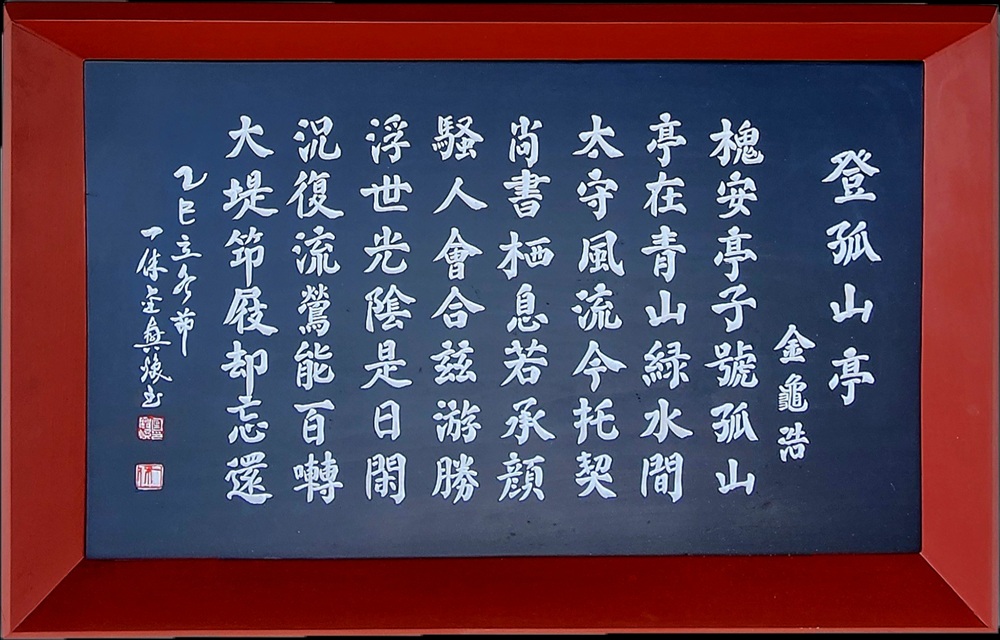 登孤山亭
金龜浩
槐安亭子號孤山
亭在青山緑水間
太守風流今托契
尚書栖息若承顔
騷人會合茲游勝
浮世光陰是日閑
況復流鶯能百囀
大堤筇屐却忘還
乙巳立冬節
一休金興煥書